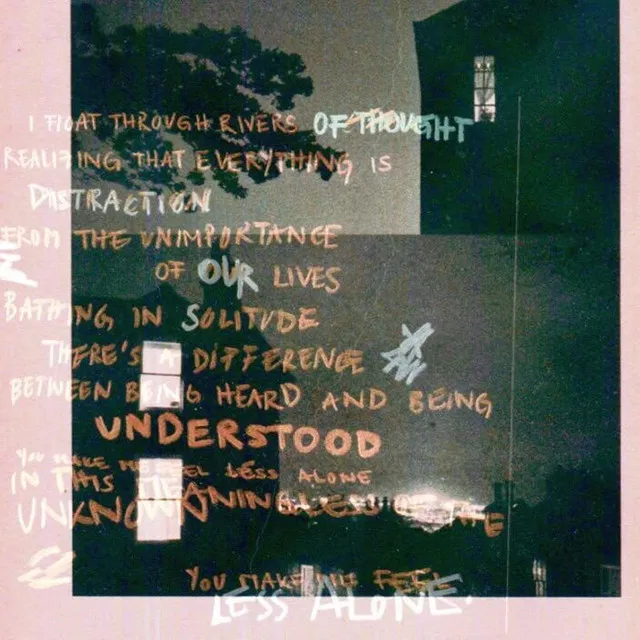 I FLOAT THROUGH RIVERS OF THOUGHT
REALIZING THAT EVERYTHING IS
DISTRACTION
FROM THE UNIMPORTANCE
OF OUR LIVES
BATHING IN SOLITUDE
THERE'S A DIFFERENCE
BETWEEN BEING HEARD AND BEING
UNDERSTOOD
YOU MAKE ME FEEL LESS ALONE
IN THIS MEANINGLESS
UNKNOWN
YOU MAKE ME FEEL
LESS ALONE.